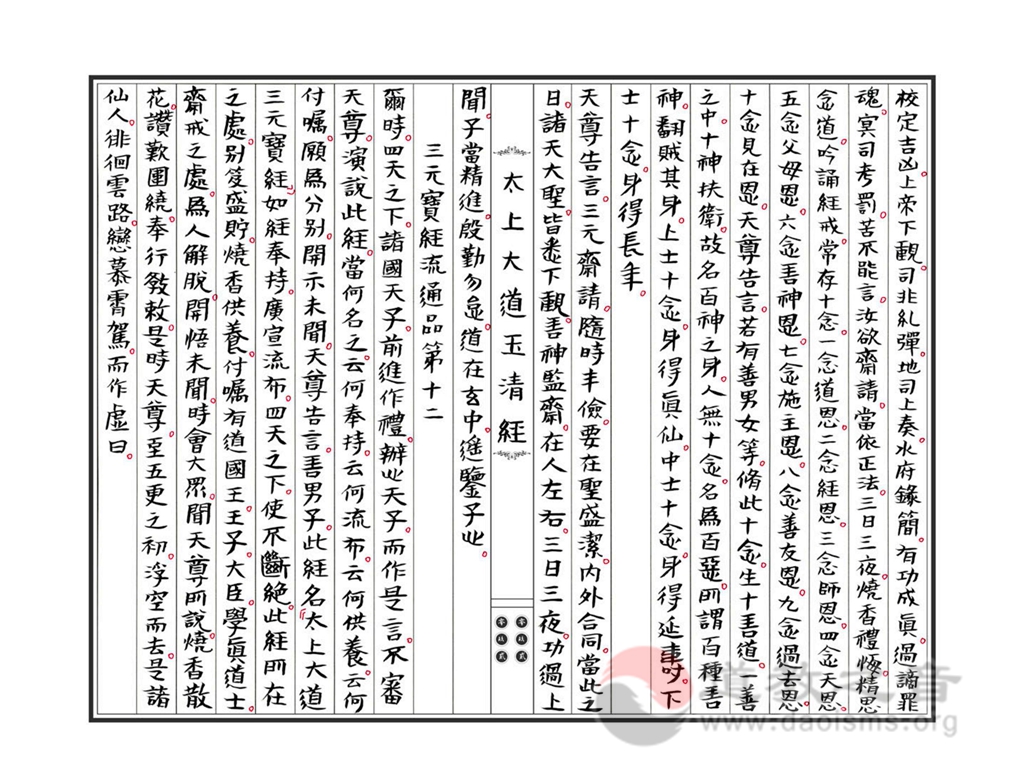 校定吉凶上帝下觀司非糺彈地司上奏水府錄簡有功成眞過謫罪
魂冥司考罰苦不能言汝欲齋請當依正法三日三夜燒香禮懺精思
念道吟誦經戒常存十念一念道恩二念經恩三念師恩四念天恩
五念父母恩六念善神恩七念施主恩八念善友恩九念過去恩
十念見在恩天尊告言若有善男女等脩此十念生十善道一善
之中十神扶衛故名百神之身人無十念名爲百惡所謂百種善
神翻賊其身上士十念身得眞仙中士十念身得延壽下
士十念身得長年
天尊告言三元齋請隨時丰儉要在聖盛潔內外合同當此之
日諸天大聖皆悉下觀善神監齋在人左右三日三夜功過上
太上大道玉清經
聞子當精進殷勤勿怠道在玄中遙鑒子心
三元寶經流通品第十二
爾時四天之下諸國天子前進作禮辦心天子而作是言不審
天尊演說此經當何名之云何奉持云何流布云何供養云何
付囑願爲分別開示未聞天尊告言善男子此經名太上大道
三元寶經如經奉持廣宣流布四天之下使不斷絕此經所在
之處別笈盛貯燒香供養付囑有道國王王子大臣學眞道士
齋戒之處爲人解脫開悟未聞時會大眾聞天尊所說燒香散
花讚歎圍繞奉行教敕是時天尊至五更之初浮空而去是諸
仙人徘徊雲路戀慕霄駕而作虛曰
道教之音
www.daoisms.org